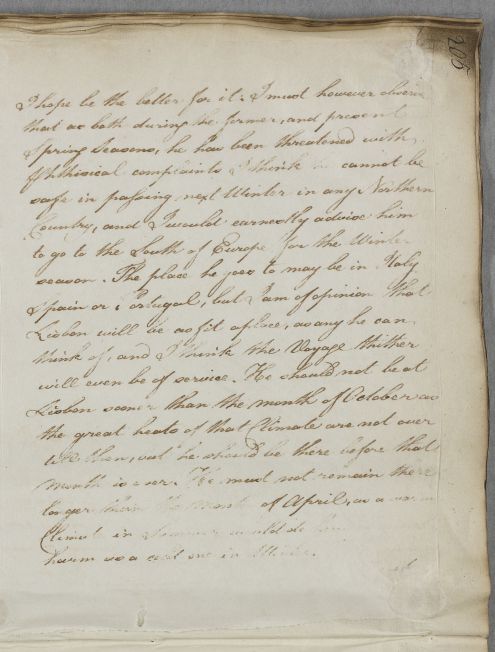 206
I hope be the better for it. I must however observe
that as both during the former, and present
Spring Seasons, he has been threatened with
Phthisical complaints I think he cannot be
safe in passing next Winter in any Northern
Country, and I would earnestly advise him
to go to the South of Europe for the Winter
season. The place he goes to may be in Italy
Spain or Portugal, but I am of opinion that
Lisbon will be as fit a place, as any he can
think of, and I think the Voyage thither
will even be of service. He should not be at
Lisbon sooner than the month of October as
the great heats of that Climate are not over
till then, but he should be there before that
month is over. He must not remain there
longer than the month of April, as a warm
Climate in Summer would do him
harm as a cold one in Winter.